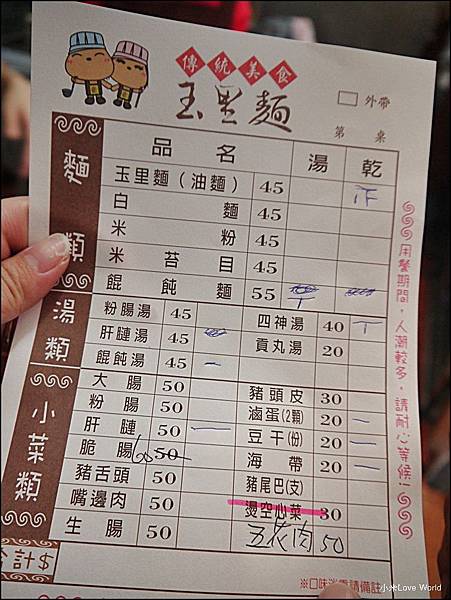 傳統美食
玉里麵
外帶
第 桌
品名 湯 乾
麵類
玉里麵（油麵） 45 正
白麵 45
米粉 45
米苔目 45
餛飩麵 55
湯類
粉腸湯 45
肝腱湯 45
餛飩湯 45 一
四神湯 40 丁
貢丸湯 20
小菜類
大腸 50
粉腸 50
肝腱 50 一
脆腸 50 60
豬舌頭 50
嘴邊肉 50
生腸 50
豬頭皮 30
滷蛋(2顆) 20 一
豆干(份) 20 一
海帶 20 一
豬尾巴(支)
燙空心菜 30
五花肉 50
合計$
用餐期間，人潮較多，請耐心等候！
請備註
小米Love World